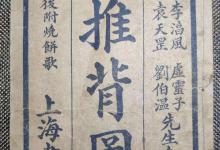 李淳風 虛靈子
袁天罡 劉伯温 先生
推背圖
後附燒餅歌
上海